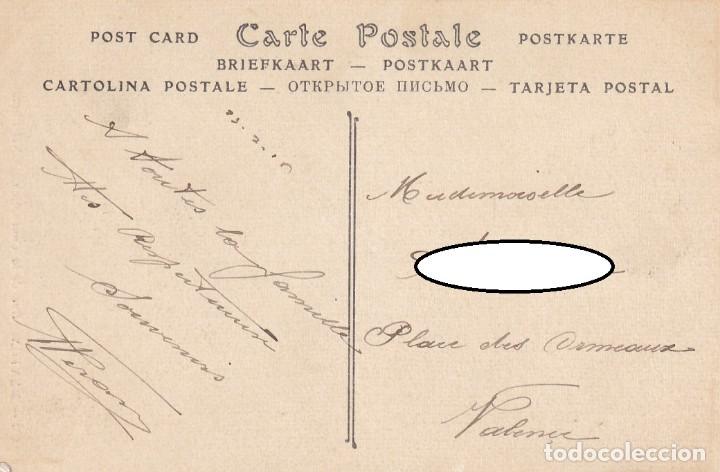 POST CARD Carte Postale POSTKARTE
BRIEFKAART — POSTKAART
CARTOLINA POSTALE — ОТКРЫТОЕ ПИСЬМО — TARJETA POSTAL
A toutes la famille
Mes respectueux
Souvenirs
Mademoiselle
Place des Ormeaux
Valence
todocoleccion